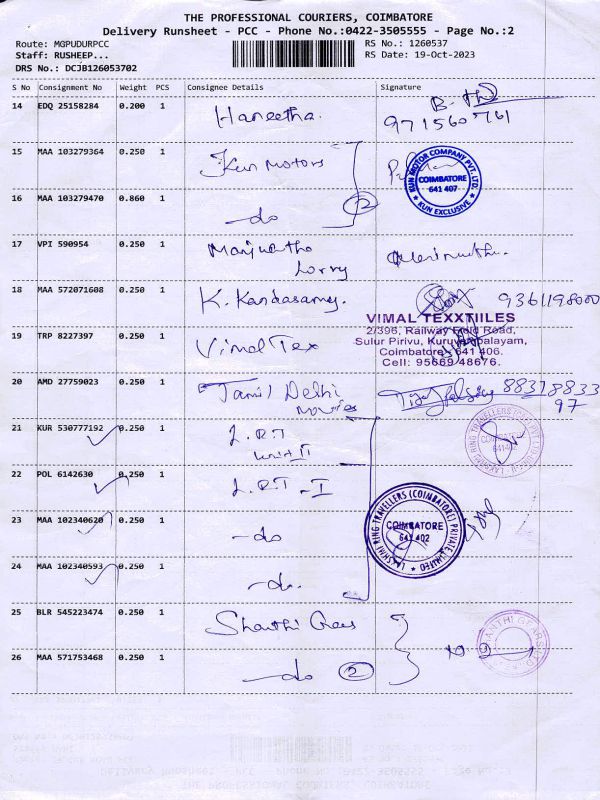 THE PROFESSIONAL COURIERS, COIMBATORE
Delivery Runsheet - PCC - Phone No.:0422-3505555 - Page No.:2
Route: MGPUDURPCC
RS No.: 1260537
Staff: RUSHEEP...
RS Date: 19-Oct-2023
DRS No.: DCJB126053702
S No Consignment No Weight PCS Consignee Details Signature
14 EDQ 25158284 0.200 1 Haneetha.
9715607761
15 MAA 103279364 0.250 1 Kun Motors
KUN MOTOR COMPANY PVT. LTD.
COIMBATORE
641 407
* KUN EXCLUSIVE *
16 MAA 103279470 0.860 1 —do 2
17 VPI 590954 0.250 1 Manjunatha
Lorry
18 MAA 572071608 0.250 1 K. Kandasamy. 9361198000
VIMAL TEXXTIILES
2/396, Railway Feild Road,
Sulur Pirivu, Kurumbapalayam,
Coimbatore - 641 406.
Cell: 95669 48676.
19 TRP 8227397 0.250 1 Vimal Tex
20 AMD 27759023 0.250 1 Tamil Delhi
Movies
88378833
97
21 KUR 530777192 0.250 1 L.R.T
Unit II
22 POL 6142630 0.250 1 L.R.T - I
LAKSHMI RING TRAVELLERS (COIMBATORE) PRIVATE LIMITED
COIMBATORE
641 402
23 MAA 102340620 0.250 1 —do
24 MAA 102340593 0.250 1 —do.
25 BLR 545223474 0.250 1 Shanthi Gears
26 MAA 571753468 0.250 1 —do 2